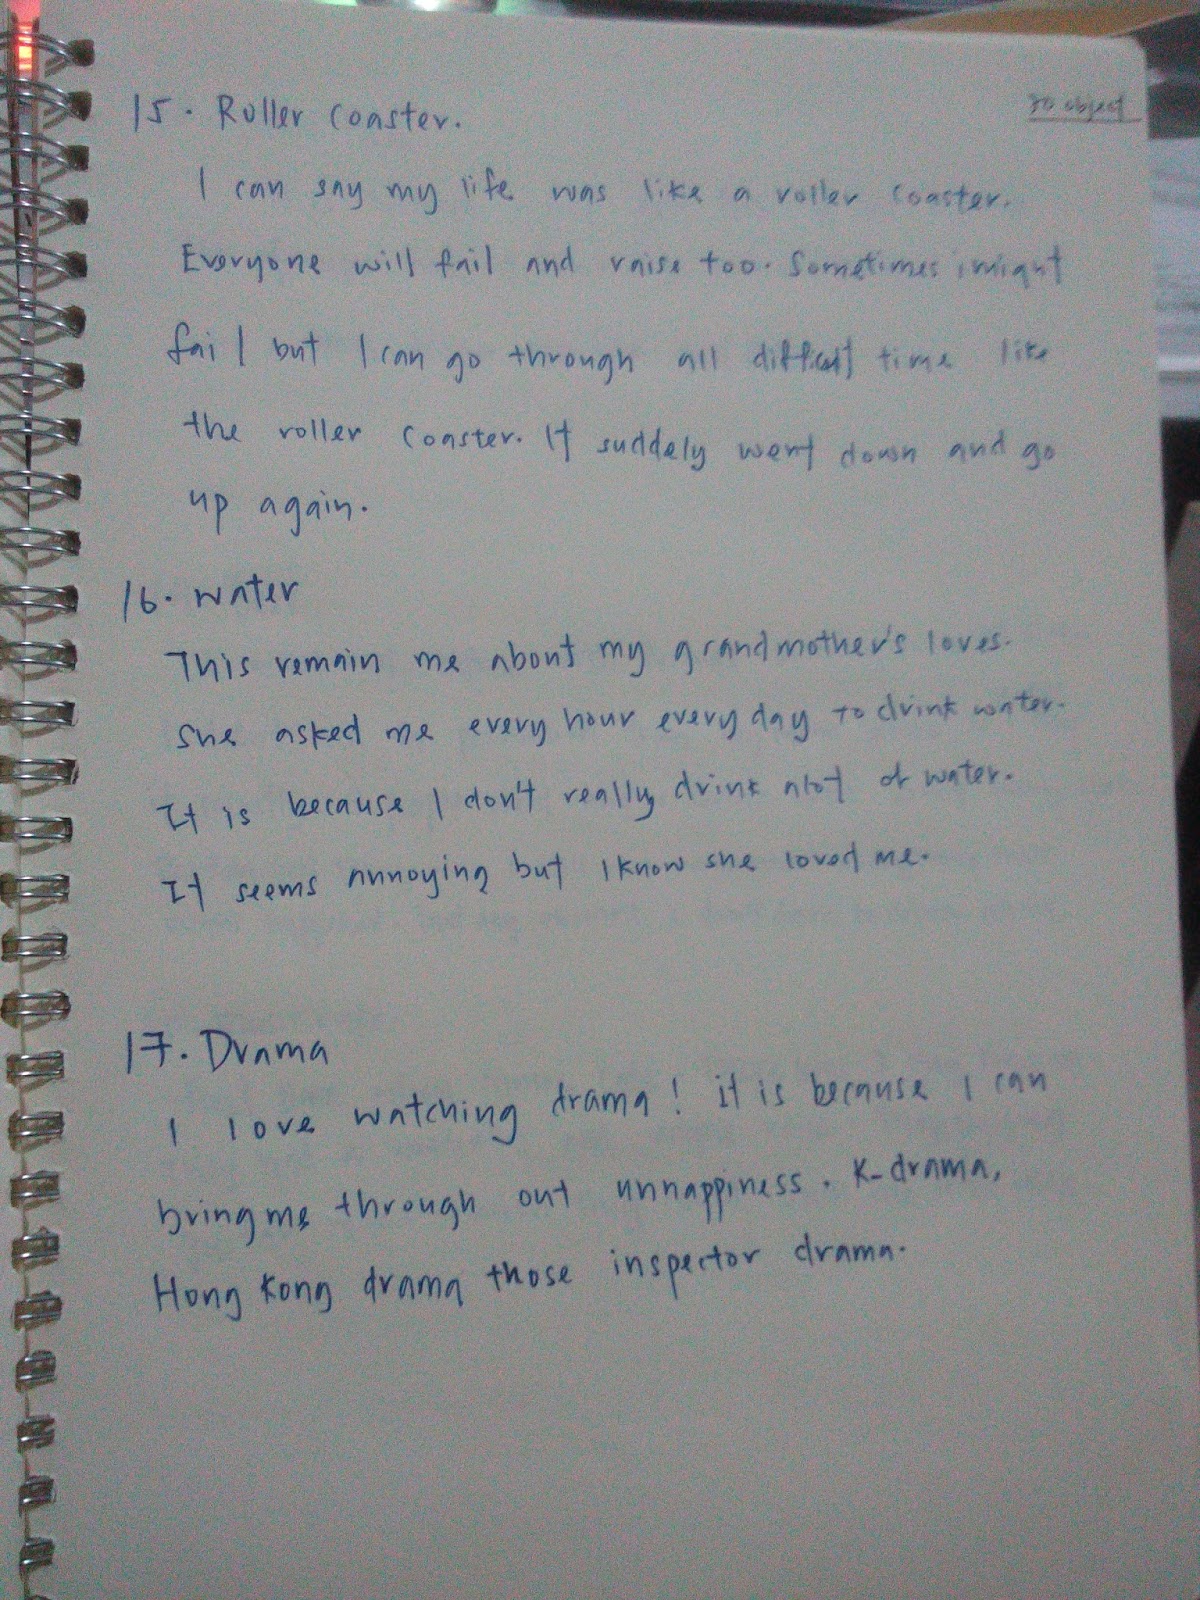 30 object
15. Roller coaster.
I can say my life was like a roller coaster.
Everyone will fail and raise too. Sometimes i might
fail but I can go through all difficult time like
the roller coaster. It suddely went down and go
up again.
16. Water
This remain me about my grandmother's loves.
She asked me every hour every day to drink water.
It is because I don't really drink alot of water.
It seems annoying but I know she loved me.
17. Drama
I love watching drama! it is because I can
bring me through out unhappiness. K-drama,
Hong Kong drama those inspector drama.